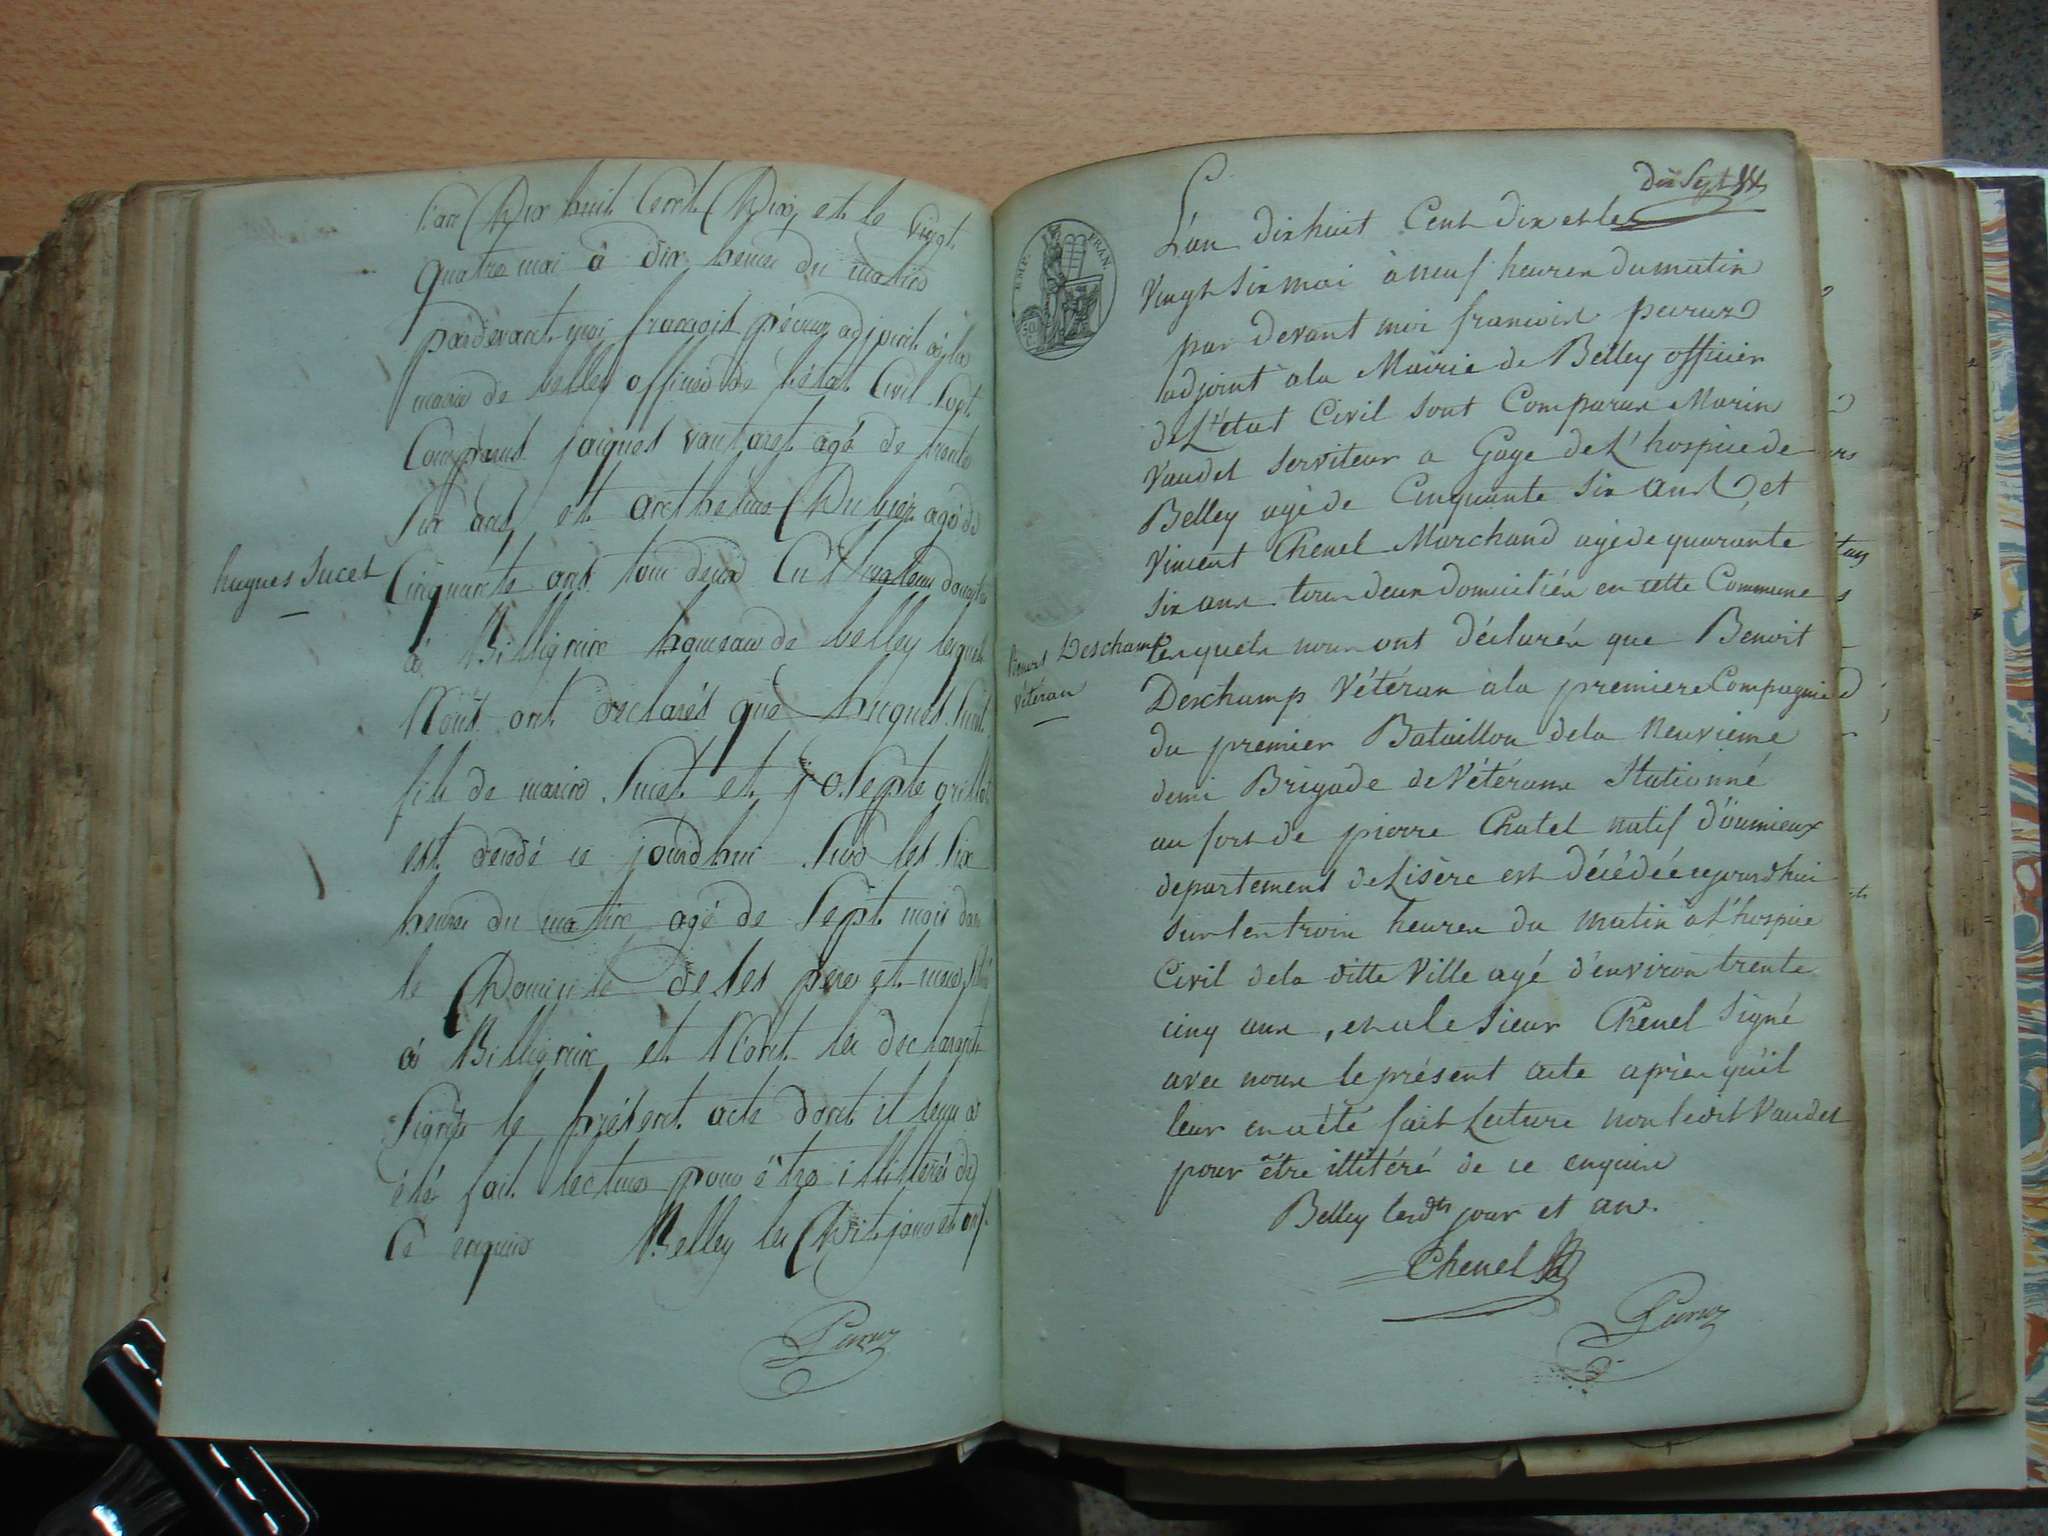 L'an Dix huit Cent Dix, et le vingt
quatre mai à dix heures du matin
pardevant moi françois péruz adjoint à la
mairie de belley officier de l'état Civil sont
Comparus jaques vautaret agé de trente
six ans et anthelme Dubier agé de
Cinquante ans tous deux Cultivateurs
à Billignin hameau de belley lesquels
Nous ont declarés que hugues Sucet
hugues Sucet
fils de marin Sucet et josephte
est decedé ce jourdhui sur les six
heures du matin agé de sept mois dans
le Domicile de ses pere et mere
à Billignin et N'ont les declarants
signés le présent acte dont il leur a
été fait lecture pour être illitérés de
Ce enquis Belley les Dit jour et an
Peruz
Dix Sept
EMP. FRAN.
L'an dix huit Cent dix et le
vingt six mai à neuf heures du matin
par devant moi francois peruz
adjoint a la Mairie de Belley officier
de L'état Civil sont Comparus Marin
Vaudet serviteur a Gage de L'hospice de
Belley agé de Cinquante six ans et
Vincent Chenel Marchand agé de quarante
six ans tous deux domiciliés en cette Commune
lesquels nous ont déclarés que Benoit
Benoit Deschamp
vétéran
Deschamp Vétéran à la premiere Compagnie
du premier Bataillon de la Neuvieme
demi Brigade de Vétérans Stationné
au fort de pierre Chatel natif d'
departement de Lisère est décédé cejourdhui
sur les trois heures du matin a L'hospice
Civil de la ditte Ville agé d'environ trente
cinq ans, et a le sieur Chenel Signé
avec nous le présent acte après qu'il
leur en a été fait Lecture non ledit Vaudet
pour être illitéré de ce enquis
Belley lesdts jour et an.
Chenel
Peruz